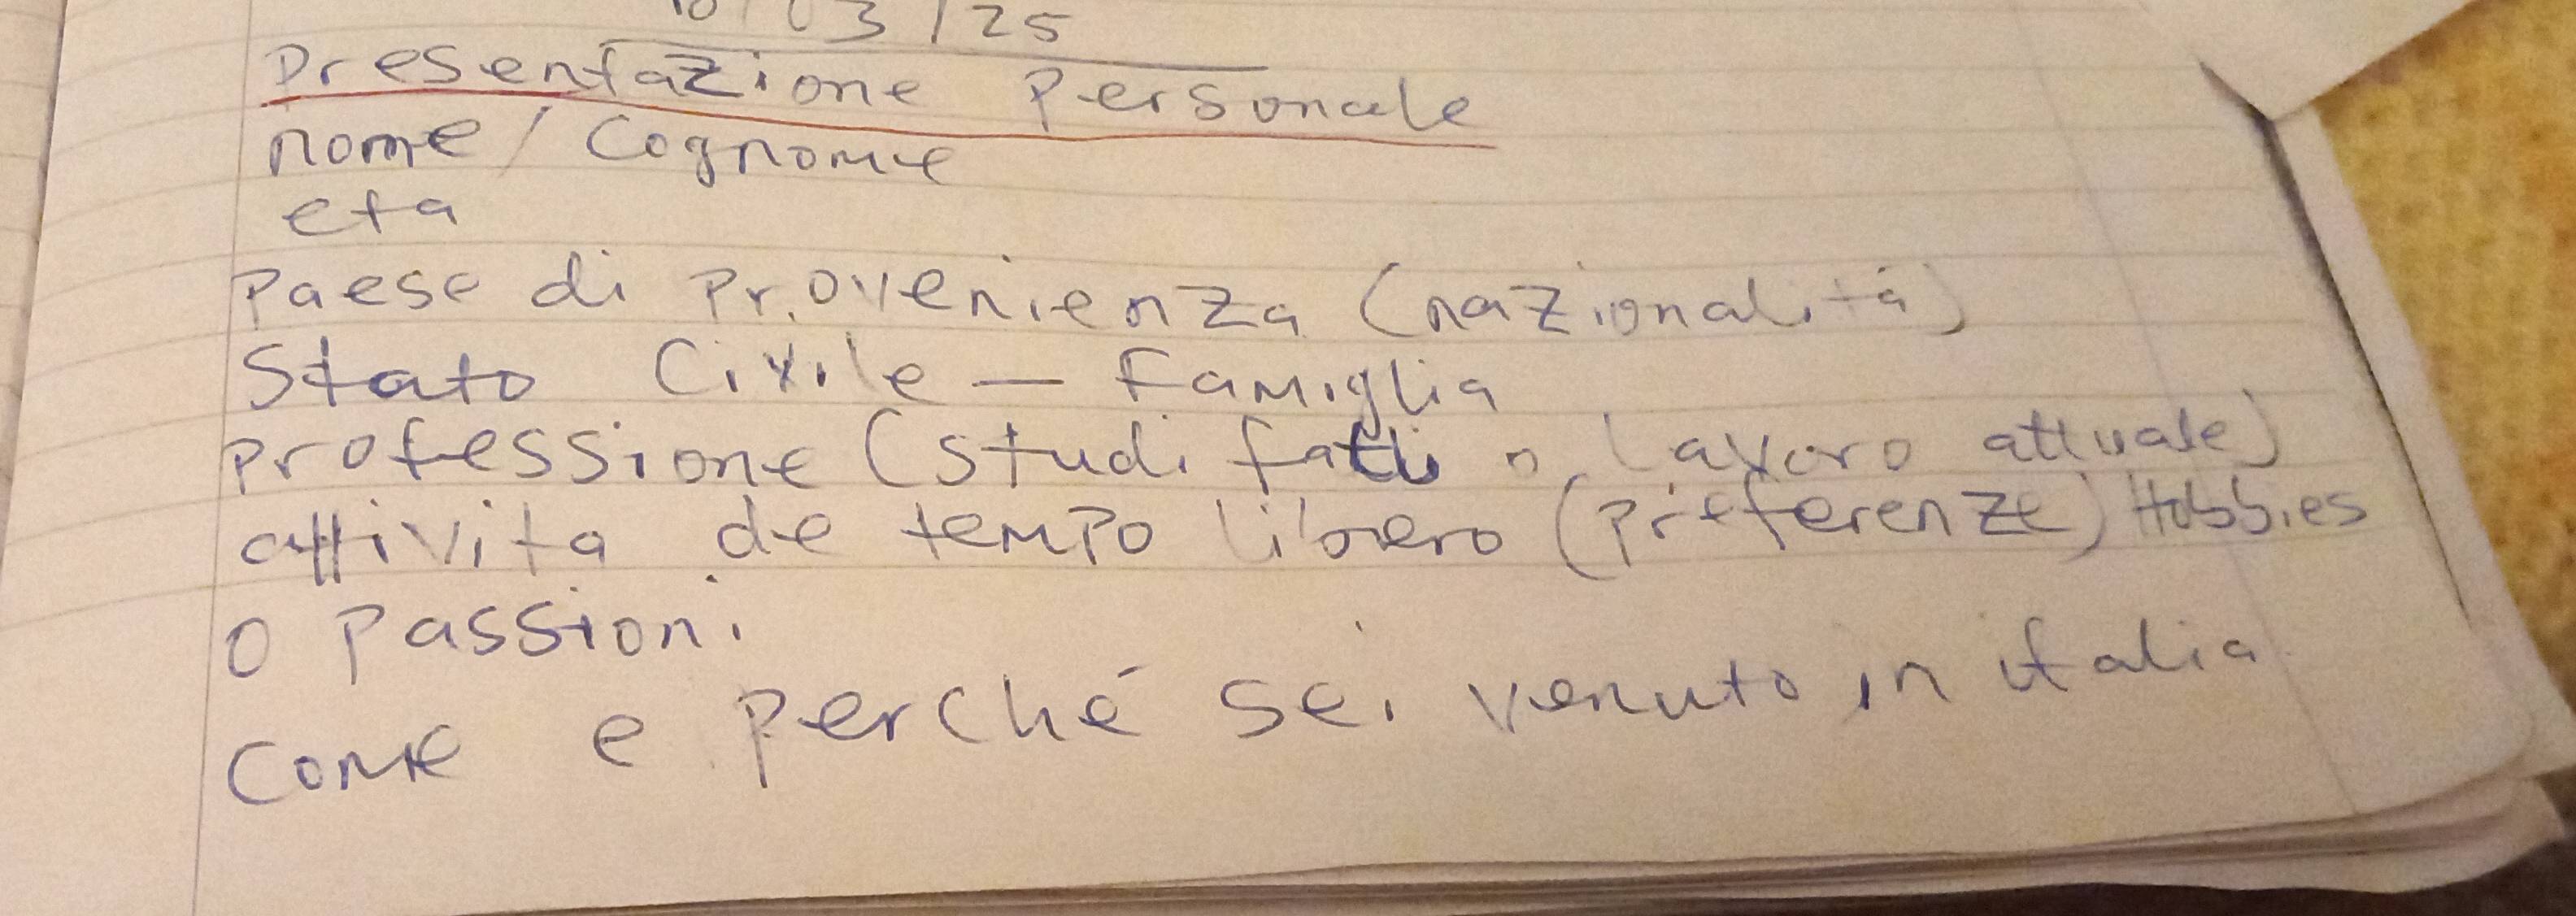 10/03/25
Presentazione Personale
nome / Cognome
eta
Paese di Provenienza (nazionalitá)
Stato Civile — Famiglia
professione (studi fatti o lavoro attuale)
attivita de tempo libero (preferenze) Hobbies
o Passioni
Come e perché sei venuto in italia